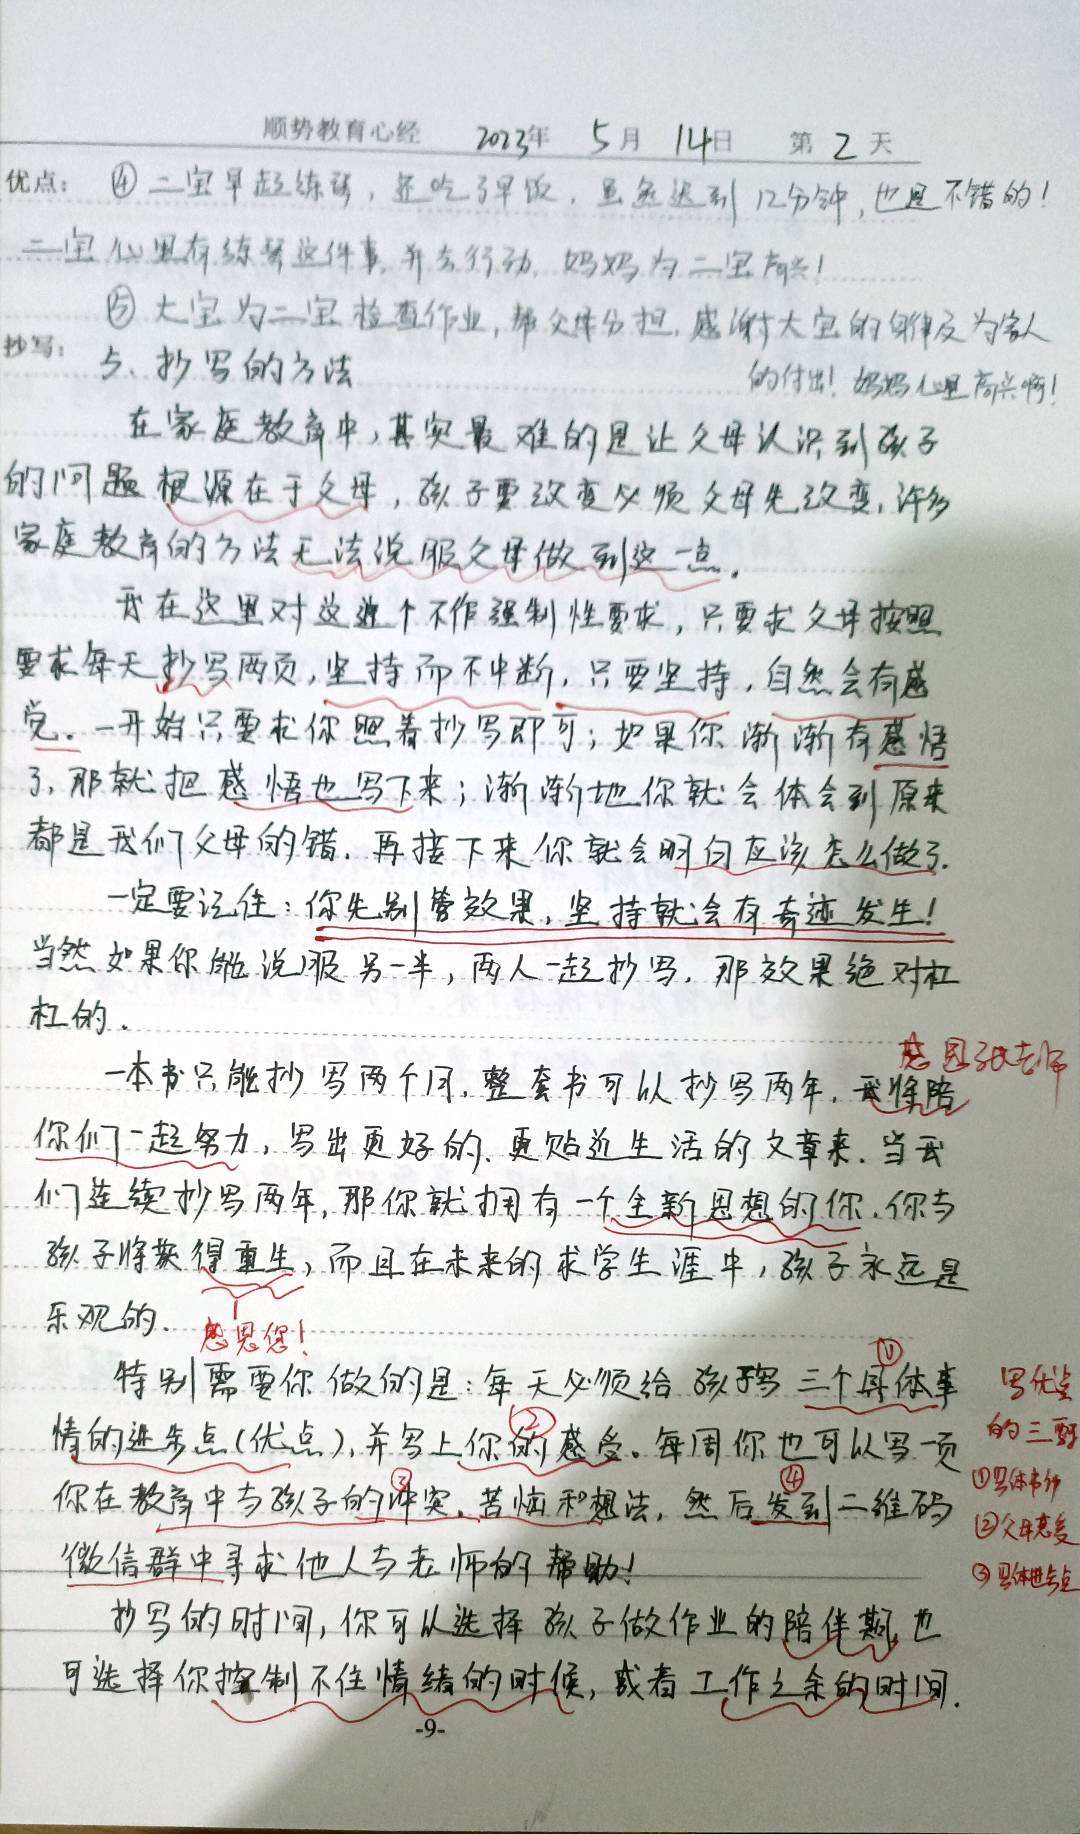 顺势教育心经 2023年 5月 14日 第2天
优点: ④二宝早起练琴,还吃了早饭,虽然迟到12分钟,也是不错的!
二宝心里有练琴这件事,并去行动,妈妈为二宝高兴!
⑤大宝为二宝检查作业,帮父母分担,感谢大宝的及为家人
的付出!妈妈心里高兴啊!
抄写: 5、抄写的方法
在家庭教育中,其实最难的是让父母认识到孩子
的问题根源在于父母,孩子要改变必须父母先改变,许多
家庭教育的方法无法说服父母做到这一点。
我在这里对这个不作强制性要求,只要求父母按照
要求每天抄写两页,坚持而不中断,只要坚持,自然会有感
觉。一开始只要求你照着抄写即可;如果你渐渐有感悟
了,那就把感悟也写下来;渐渐地你就会体会到原来
都是我们父母的错.再接下来你就会明白应该怎么做了.
一定要记住:你先别管效果,坚持就会有奇迹发生!
当然如果你能说服另一半,两人一起抄写,那效果绝对杠
杠的.
感恩张老师
一本书只能抄写两个月,整套书可以抄写两年,我将陪
你们一起努力,写出更好的、更贴近生活的文章来.当我
们连续抄写两年,那你就拥有一个全新思想的你.你与
孩子将获得重生,而且在未来的求学生涯中,孩子永远是
乐观的.
感恩您!
特别需要你做的是:每天必须给孩子写三个具体事
①
情的进步点(优点),并写上你的感受。每周你也可以写一页
②
你在教育中与孩子的冲突、苦恼和想法,然后发到二维码
③ ④
微信群中寻求他人与老师的帮助!
写优点
的三要
①具体事件
②父母感受
③具体进步点
抄写的时间,你可以选择孩子做作业的陪伴期,也
可选择你控制不住情绪的时候,或者工作之余的时间.
-9-